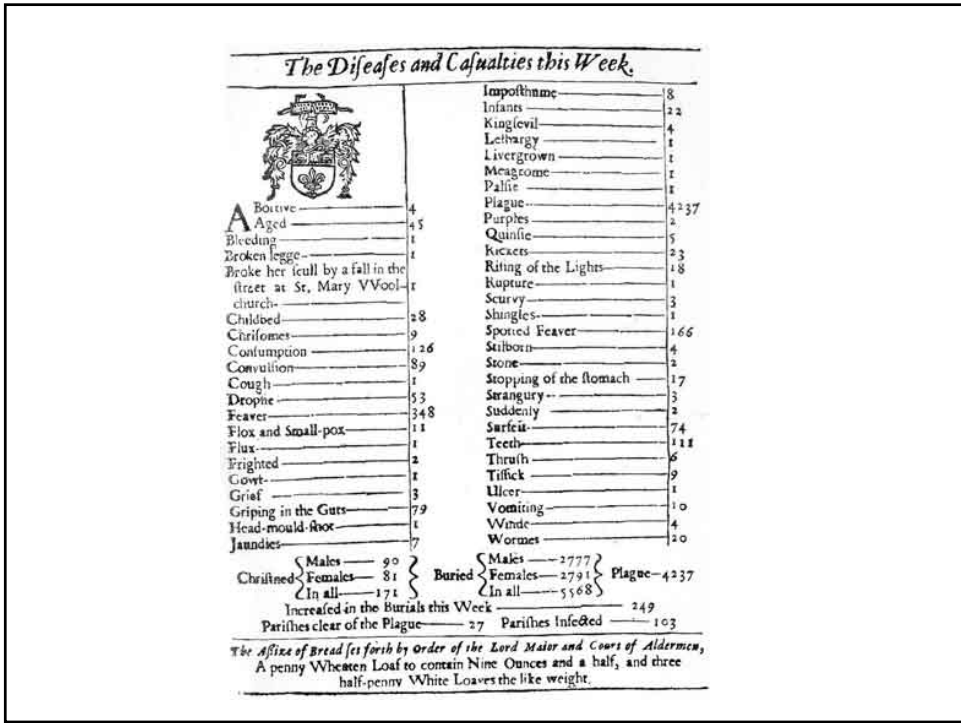 The Diſeaſes and Caſualties this Week.
ABortive 4
Aged 45
Bleeding 1
Broken legge 1
Broke her ſcull by a fall in the
ſtreet at St, Mary VVool- 1
church-
Childbed 28
Chriſomes 9
Conſumption 126
Convulſion 89
Cough 1
Dropſie 53
Feaver 348
Flox and Small-pox 11
Flux 1
Frighted 2
Gowt 1
Grief 3
Griping in the Guts 79
Head-mould-ſhot 1
Jaundies 7
Impoſthume 8
Infants 22
Kingſevil 4
Lethargy 1
Livergrown 1
Meagrome 1
Palſie 1
Plague 4237
Purples 2
Quinſie 5
Rickets 23
Riſing of the Lights 18
Rupture 1
Scurvy 3
Shingles 1
Spotted Feaver 166
Stilborn 4
Stone 2
Stopping of the ſtomach 17
Strangury 3
Suddenly 2
Surfeit 74
Teeth 111
Thruſh 6
Tiſſick 9
Ulcer 1
Vomiting 10
Winde 4
Wormes 20
Chriſtned Males 90 Females 81 In all 171
Buried Males 2777 Females 2791 In all 5568
Plague 4237
Increaſed in the Burials this Week 249
Pariſhes clear of the Plague 27 Pariſhes Infected 103
The Aſſize of Bread ſet forth by Order of the Lord Maior and Court of Aldermen,
A penny Wheaten Loaf to contain Nine Ounces and a half, and three
half-penny White Loaves the like weight.